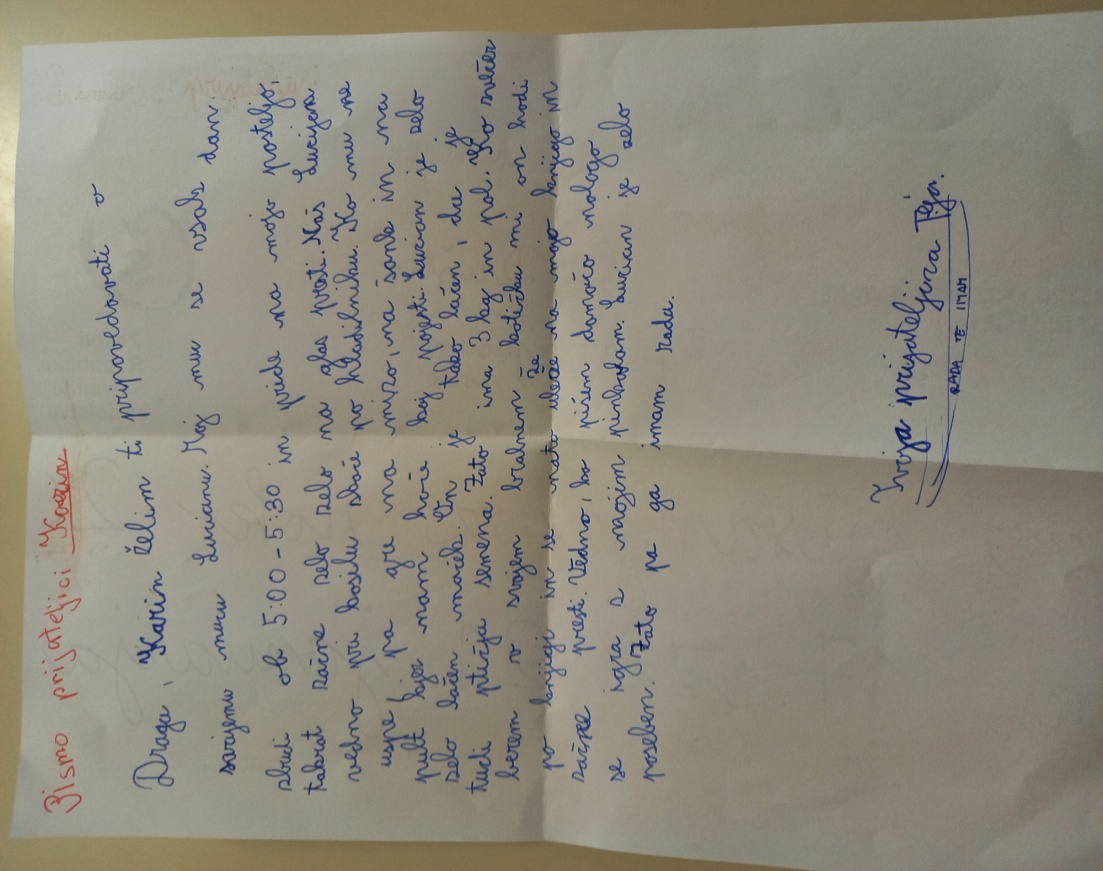 Pismo prijateljici Karin
Draga, Karin želim ti pripovedovati o
svojemu mucu Lucianu. Moj muc se vsak dan
zbudi ob 5:00 - 5:30 in pride na mojo posteljo,
takrat začne zelo zelo na glas presti. Naš Lucijan
vedno pri kosilu skače po hladilniku. Ko mu ne
uspe pa gre na mizo, na šank in na
pult kjer nam hoče kaj pojesti. Lucian je zelo
zelo lačen maček. On je tako lačen, da je
tudi ptičja semena. Zato ima 3 kg in pol. Ko zvečer
berem v svojem bralnem kotičku mi on hodi
po knjigi in se nato uleže na mojo knjigo in
začne presti. Vedno, ko pišem domačo nalogo
se igra z mojim pinkodam. Lucian je zelo
poseben. Zato pa ga imam rada.
Tvoja prijateljica Teja.
RADA TE IMAM